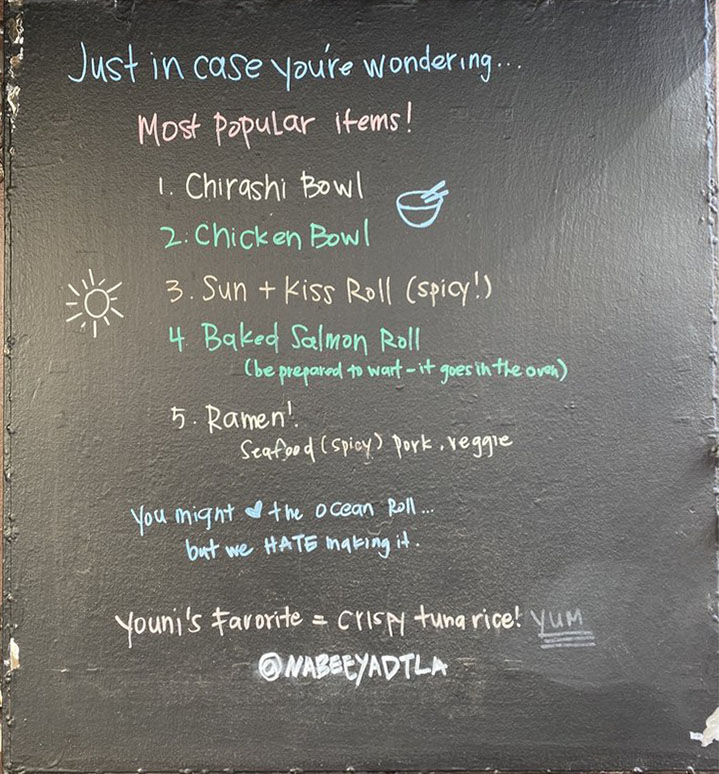 Just in case you're wondering...
Most Popular items!
1. Chirashi Bowl
2. Chicken Bowl
3. Sun + Kiss Roll (spicy!)
4. Baked Salmon Roll
(be prepared to wait - it goes in the oven)
5. Ramen!
Seafood (spicy) pork, veggie
You might ♥ the ocean Roll...
but we HATE making it.
Youni's Favorite = crispy tuna rice! YUM
@NABEEYADTLA